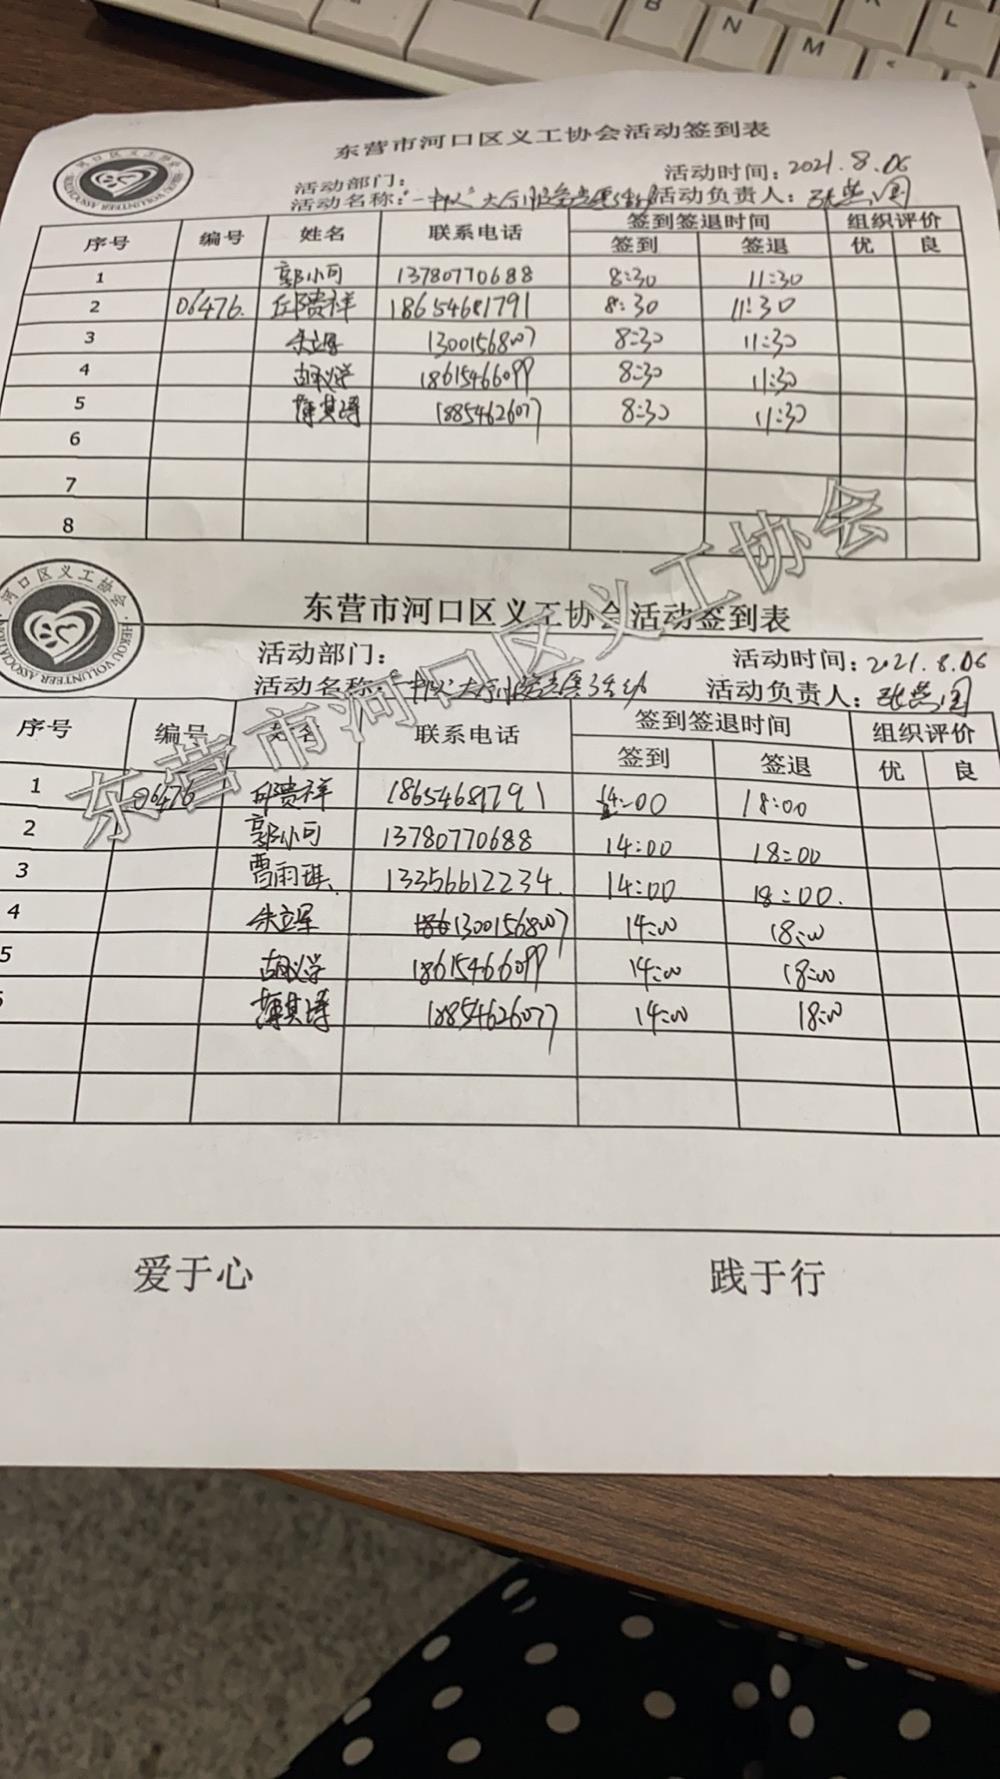 B N M L
东营市河口区义工协会活动签到表
活动部门： 活动时间：2021.8.06
活动名称： 活动负责人：
序号 编号 姓名 联系电话 签到签退时间 组织评价
签到 签退 优 良
1 郭小可 13780770688 8:30 11:30
2 06476. 邱贵祥 18654681791 8:30 11:30
3 朱立军 13001568007 8:30 11:30
4 18615466099 8:30 11:30
5 薄其涛 18854626077 8:30 11:30
6
7
8
河口区义工协会
HEKOU VOLUNTEER ASSOCIATION
东营市河口区义工协会活动签到表
活动部门： 活动时间：2021.8.06
活动名称： 活动负责人：
序号 编号 姓名 联系电话 签到签退时间 组织评价
签到 签退 优 良
1 06476 邱贵祥 18654681791 14:00 18:00
2 郭小可 13780770688 14:00 18:00
3 曹雨琪 13356612234. 14:00 18:00.
4 朱立军 13001568007 14:00 18:00
5 18615466099 14:00 18:00
薄其涛 18854626077 14:00 18:00
东营市河口区义工协会
爱于心 践于行